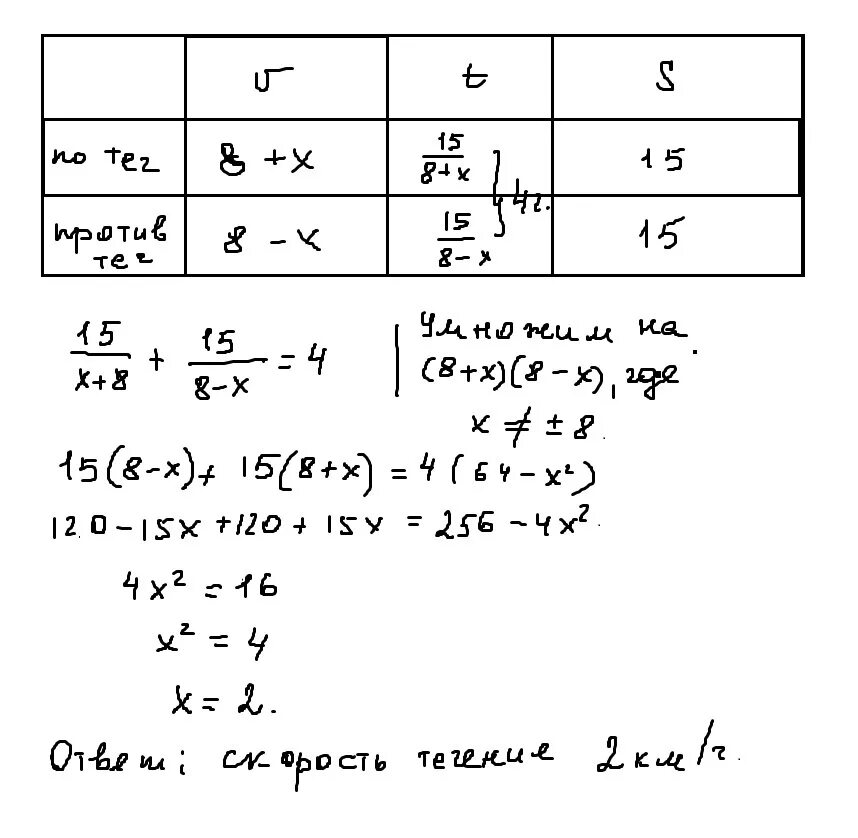 v t S
по теч 8 + x 15/(8+x) 15
4ч.
против теч 8 - x 15/(8-x) 15
15/(x+8) + 15/(8-x) = 4 | Умножим на
(8+x)(8-x), где
x ≠ ± 8.
15(8-x) + 15(8+x) = 4(64-x²)
120-15x+120+15x = 256-4x²
4x² = 16
x² = 4
x = 2.
Ответ: скорость течения 2км/ч.